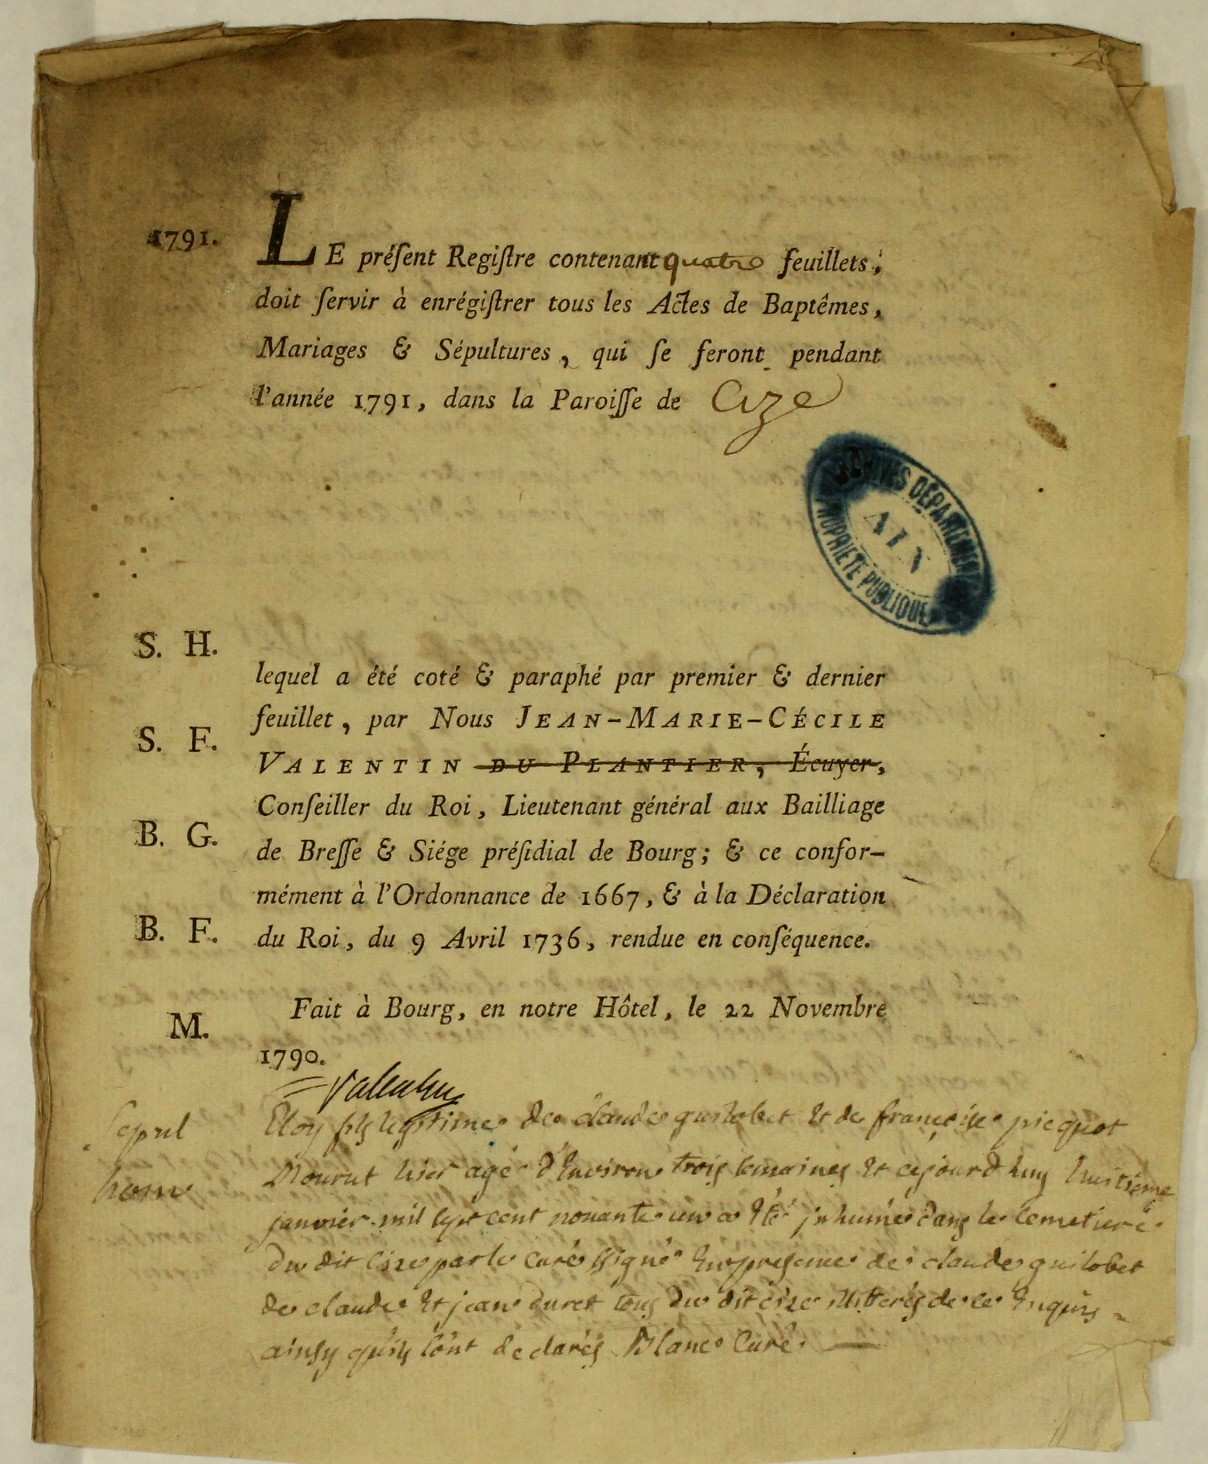 1791.
LE préſent Regiſtre contenant quatre feuillets,
doit ſervir à enrégiſtrer tous les Actes de Baptêmes,
Mariages & Sépultures, qui ſe feront pendant
l'année 1791, dans la Paroiſſe de Cize
ARCHIVES DÉPARTEMENT
AIN
PROPRIÉTÉ PUBLIQUE
S. H.
S. F.
B. G.
B. F.
M.
lequel a été coté & paraphé par premier & dernier
feuillet, par Nous JEAN-MARIE-CÉCILE
VALENTIN DU PLANTIER, Écuyer,
Conſeiller du Roi, Lieutenant général aux Bailliage
de Breſſe & Siége préſidial de Bourg; & ce confor-
mément à l'Ordonnance de 1667, & à la Déclaration
du Roi, du 9 Avril 1736, rendue en conſéquence.
Fait à Bourg, en notre Hôtel, le 22 Novembre
1790.
Valentin
Sepul
hom
Eloy fils legitime de claude guilobet et de françoise picquot
Mourut hier agé d'Environ trois semaines et cejourd'huy huitieme
janvier mil sept cent nonante un a eté inhumé dans le cemetiere
du dit Cize par le curé ssigné En presence de claude guilobet
de claude et jean duret tous du dit cize illiterés de ce Enquis
ainsy quils lont declarés Blanc Curé